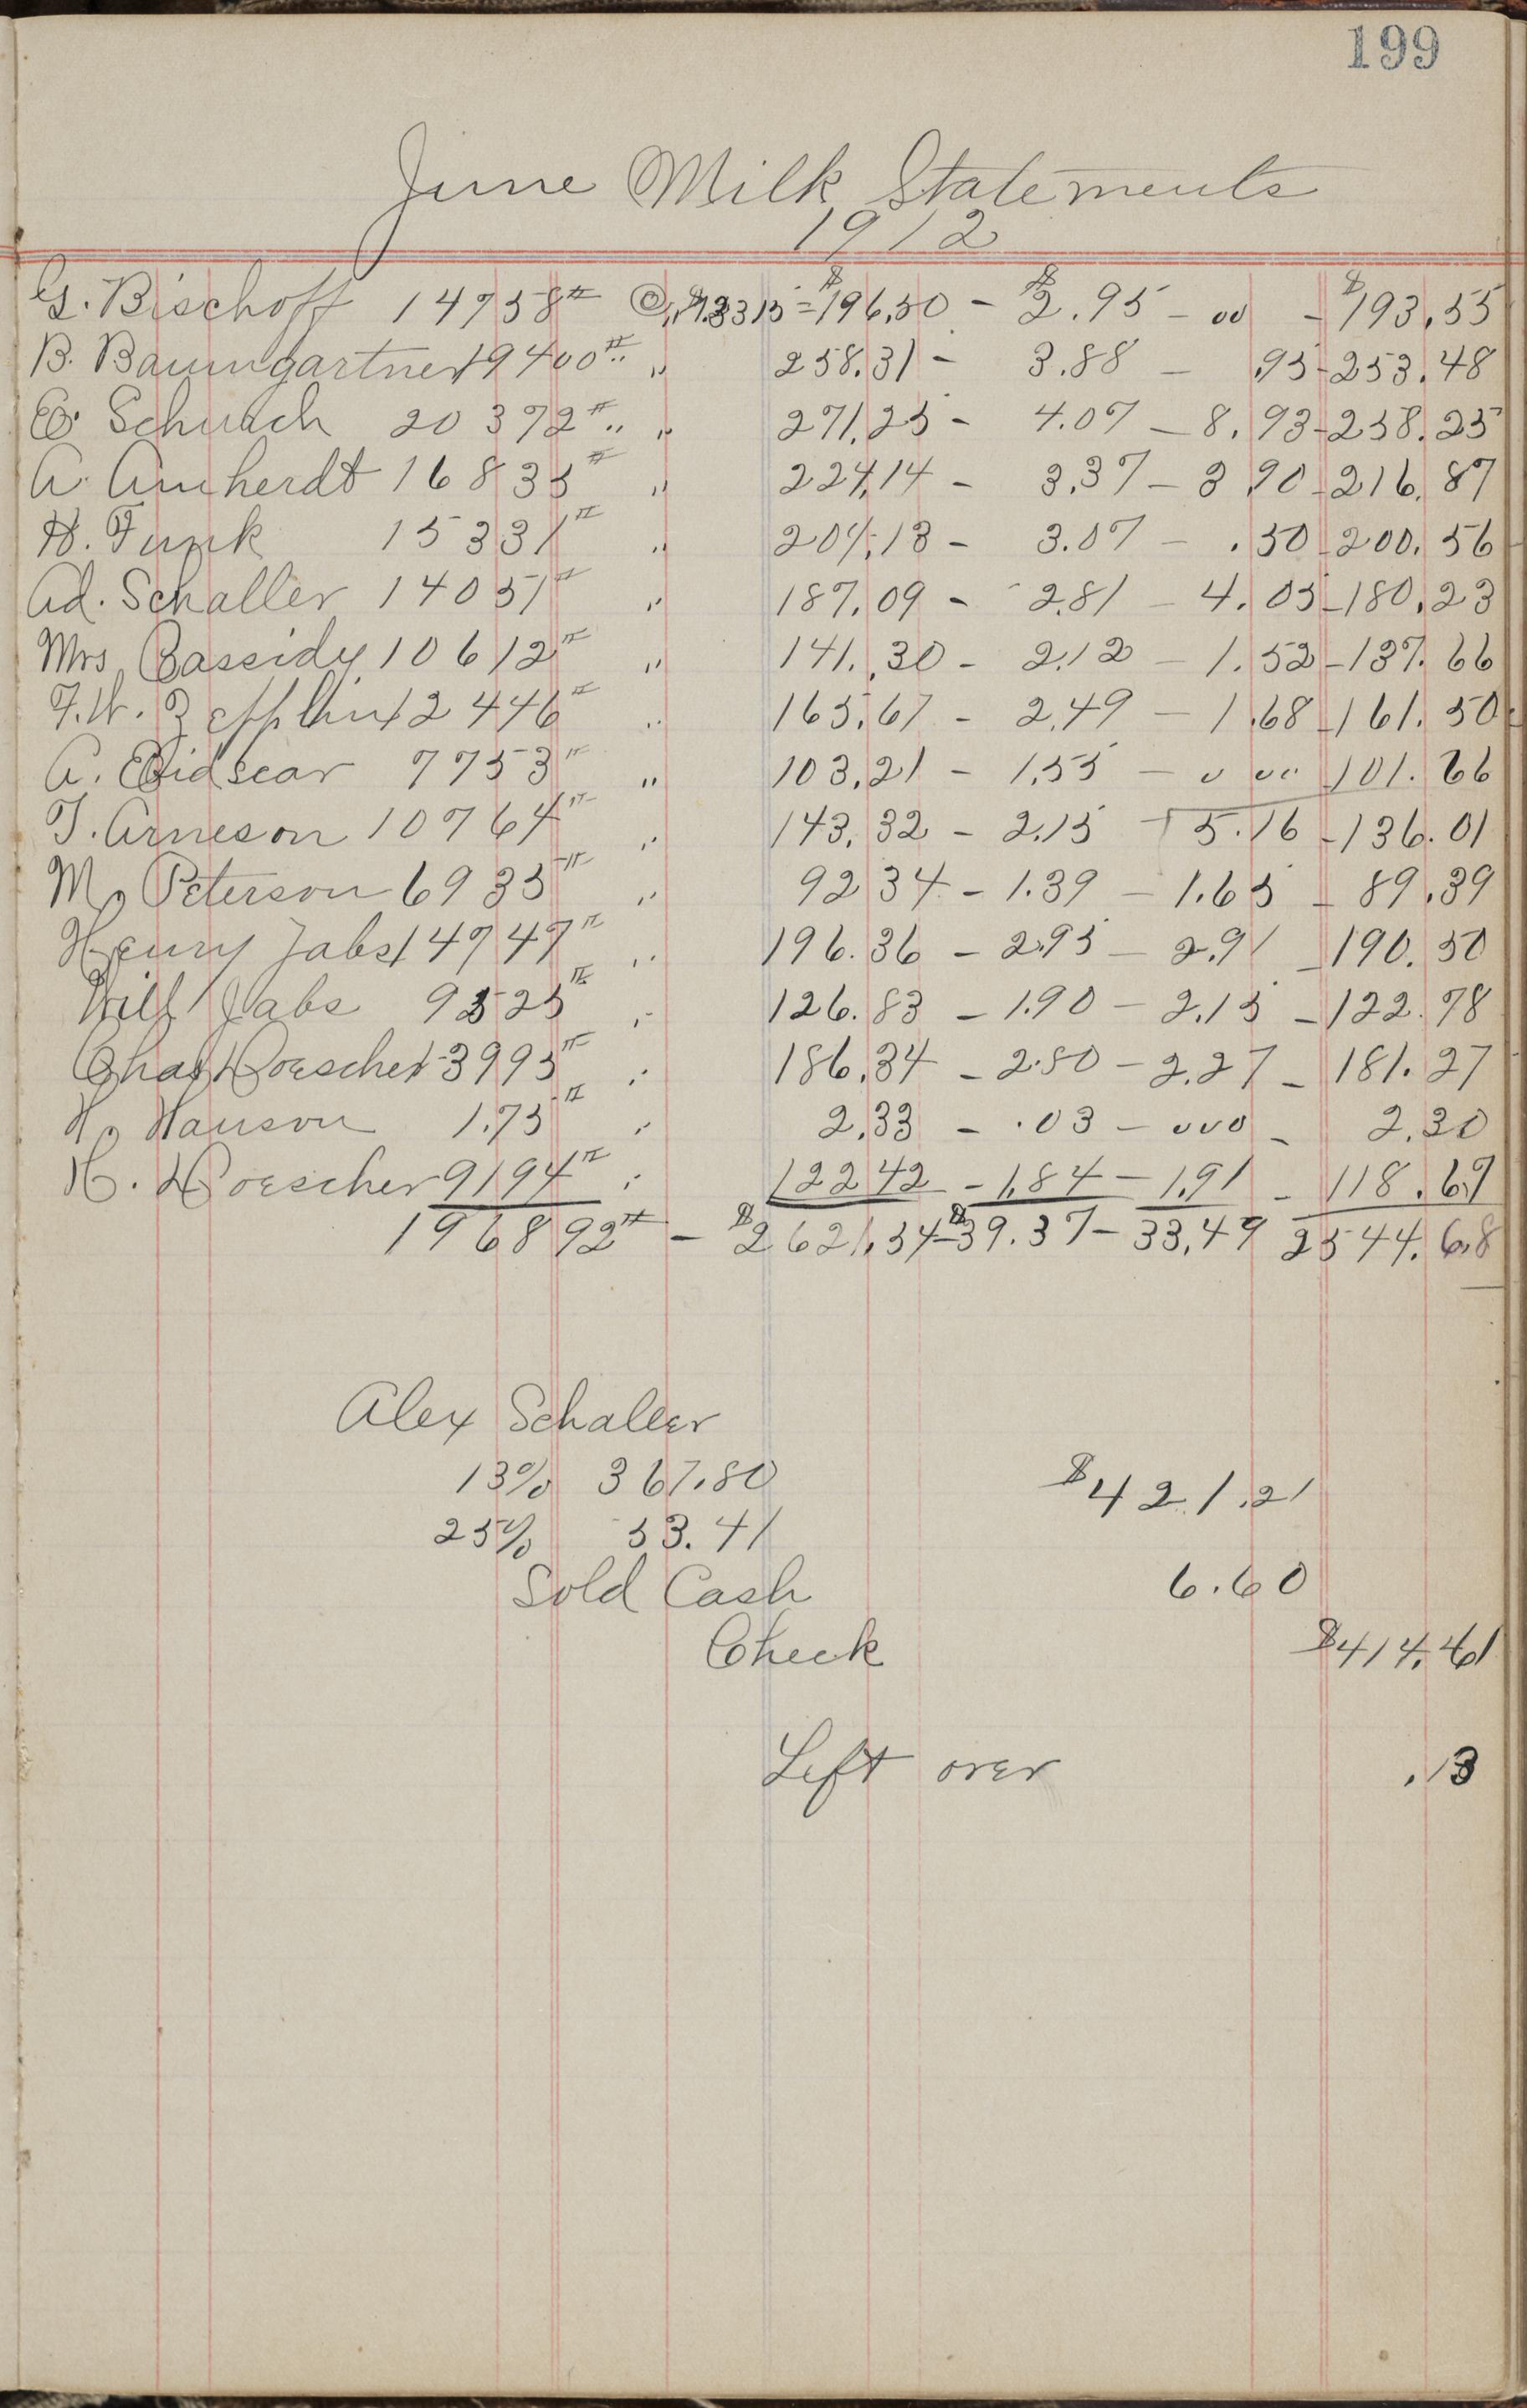 199
June Milk Statements
1912
G. Bischoff 14758# @ $1.3315 = $196.50 - $2.95 - 00 - $193.55
B. Baumgartner 19400# " 258.31 - 3.88 - .95 - 253.48
E. Schurch 20372# " 271.25 - 4.07 - 8.93 - 258.25
A. Amherdt 16833# " 224.14 - 3.37 - 3.90 - 216.87
H. Funk 15331# " 204.13 - 3.07 - .50 - 200.56
Ad. Schaller 14051# " 187.09 - 2.81 - 4.05 - 180.23
Mrs Cassidy 10612# " 141.30 - 2.12 - 1.52 - 137.66
F.W. Zepplin 12446# " 165.67 - 2.49 - 1.68 - 161.50
A. Eidsear 7753# " 103.21 - 1.55 - 000 101.66
T. Arneson 10764# " 143.32 - 2.15 - 5.16 - 136.01
M. Peterson 6935# " 92 34 - 1.39 - 1.65 - 89.39
Henry Jabs 14747# " 196.36 - 2.95 - 2.91 - 190.50
Will Jabs 9525# " 126.83 - 1.90 - 2.15 - 122.78
Chas Doescher 13995# " 186.34 - 2.80 - 2.27 - 181.27
H. Hanson 1.75# " 2.33 - .03 - 000 - 2.30
H. Doescher 9194# " 122 42 - 1.84 - 1.91 - 118.67
196892# - $2621.54 - $39.37 - 33.49 2544.68
Alex Schaller
13% 367.80 $421.21
25% 53.41
Sold Cash 6.60
Check $414.61
Left over .13